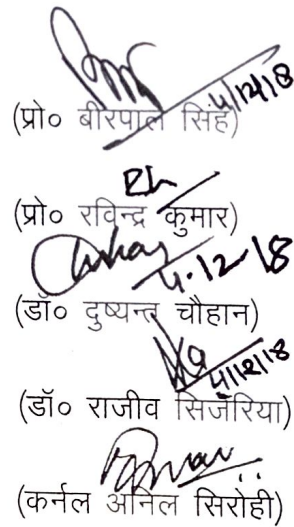 4/12/18
(प्रो० बीरपाल सिंह)
(प्रो० रविन्द्र कुमार)
4.12.18
(डॉ० दुष्यन्त चौहान)
4/12/18
(डॉ० राजीव सिजेरिया)
(कर्नल अनिल सिरोही)